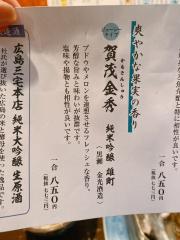 相性が良い。
一合 八五〇円
(税抜 七七三円)
爽やかな果実の香り
かもきんしゅう
賀茂金秀 純米吟醸 雄町
(黒瀬 金光酒造)
ブドウやメロンを連想させるフレッシュな香り。
芳醇な旨みと味わいが抜群です。
塩味や揚物とも相性が良い。
一合 八五〇円
(税抜 七七三円)
広島三宅本店 純米大吟醸 生原酒